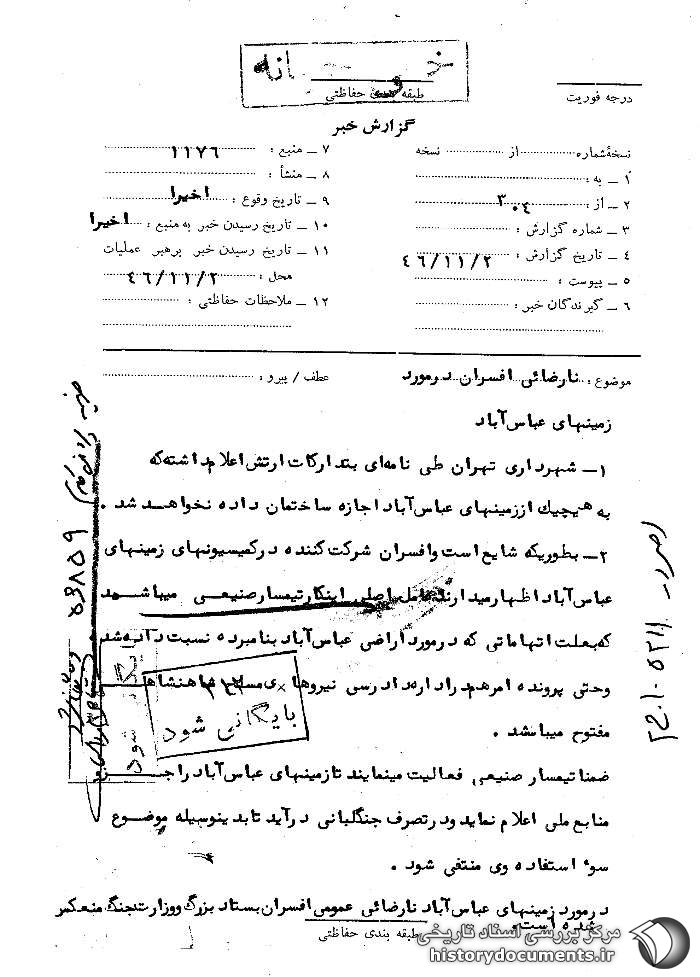 طبقه بندی حفاظتی
درجه فوریت
گزارش خبر
نسخهٔ شماره از نسخه
۱ ــ به :
۲ ــ از : ۳۰۴
۳ ــ شماره گزارش :
۴ ــ تاریخ گزارش : ۴۶/۱۱/۲
۵ ــ پیوست :
۶ ــ گیرندگان خبر :
۷ ــ منبع : ۱۱۷۶
۸ ــ منشأ :
۹ ــ تاریخ وقوع : اخیرا
۱۰ ــ تاریخ رسیدن خبر به منبع : اخیرا
۱۱ ــ تاریخ رسیدن خبر برهبر عملیات
محل : ۴۶/۱۱/۲
۱۲ ــ ملاحظات حفاظتی :
موضوع : نارضائی افسران درمورد
عطف / پیرو :
زمینهای عباس‌آباد
۱ــ شهرداری تهران طی نامه‌ای بتدارکات ارتش اعلام داشته که
به هیچیک از زمینهای عباس‌آباد اجازه ساختمان داده نخواهد شد .
۲ــ بطوریکه شایع است وافسران شرکت کننده درکمیسیونهای زمینهای
عباس‌آباد اظهار میدارند عامل اصلی اینکار تیمسار صنیعی میباشد
که بعلت اتهاماتی که درمورد اراضی عباس‌آباد بنامبرده نسبت داده شد
وحتی پرونده امرهم در اداره دادرسی نیروهای مسلح شاهنشاهی
مفتوح میباشد .
بایگانی شود
ضمنا تیمسار صنیعی فعالیت مینمایند تا زمینهای عباس‌آباد را جز
منابع ملی اعلام نماید ودر تصرف جنگلبانی درآید تا بدینوسیله موضوع
سوء استفاده وی منتفی شود .
درمورد زمینهای عباس‌آباد نارضائی عمومی افسران بستاد بزرگ ووزارت جنگ منعکس
شده است .
طبقه بندی حفاظتی
مرکز بررسی اسناد تاریخی
historydocuments.ir